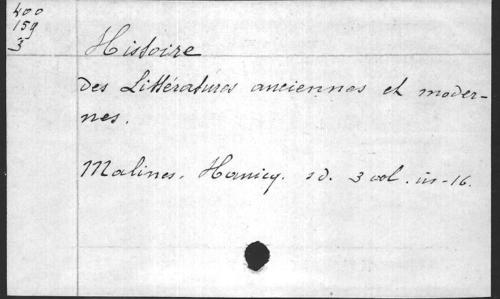 400
159
3
Histoire
des Littératures anciennes et moder-
nes.
Malines. Hanicq. sd. 3 vol. in-16.